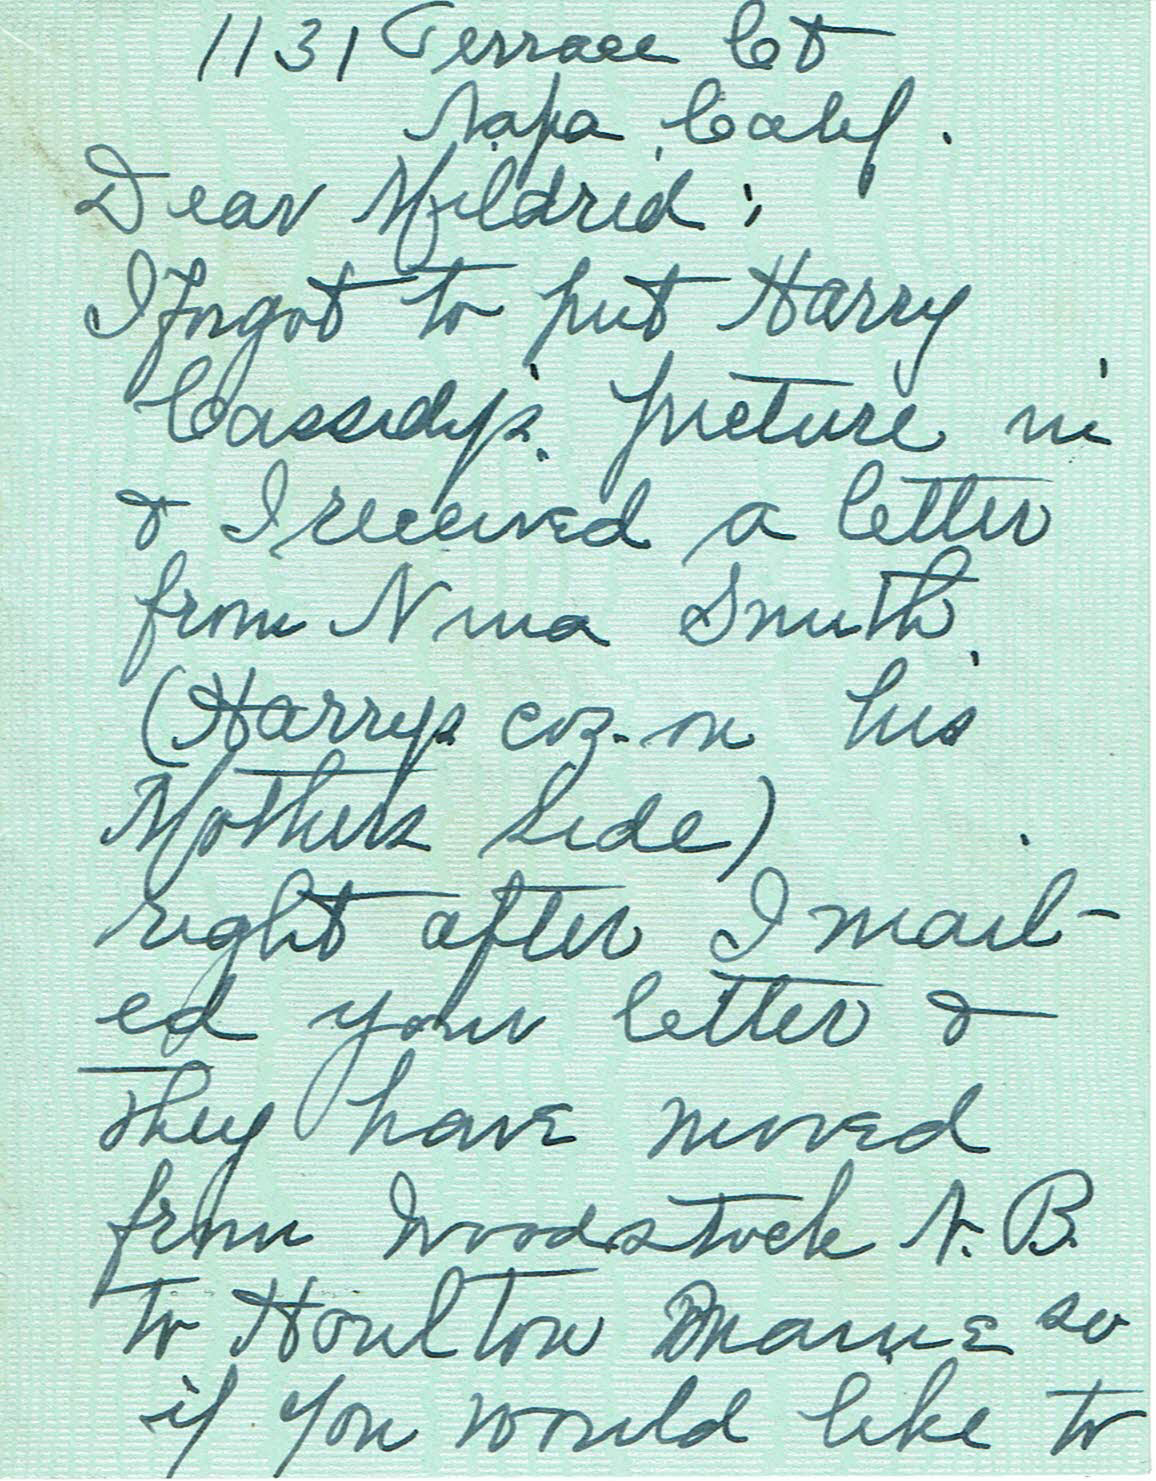 1131 Terrace Ct
Napa, Calif.
Dear Mildrid:
I forgot to put Harry
Cassidy's picture in
& I received a letter
from Nina Smith,
(Harrys coz. on his
Mothers Side)
right after I mail-
ed your letter &
they have moved
from Woodstock N.B.
to Houlton Maine so
if you would like to